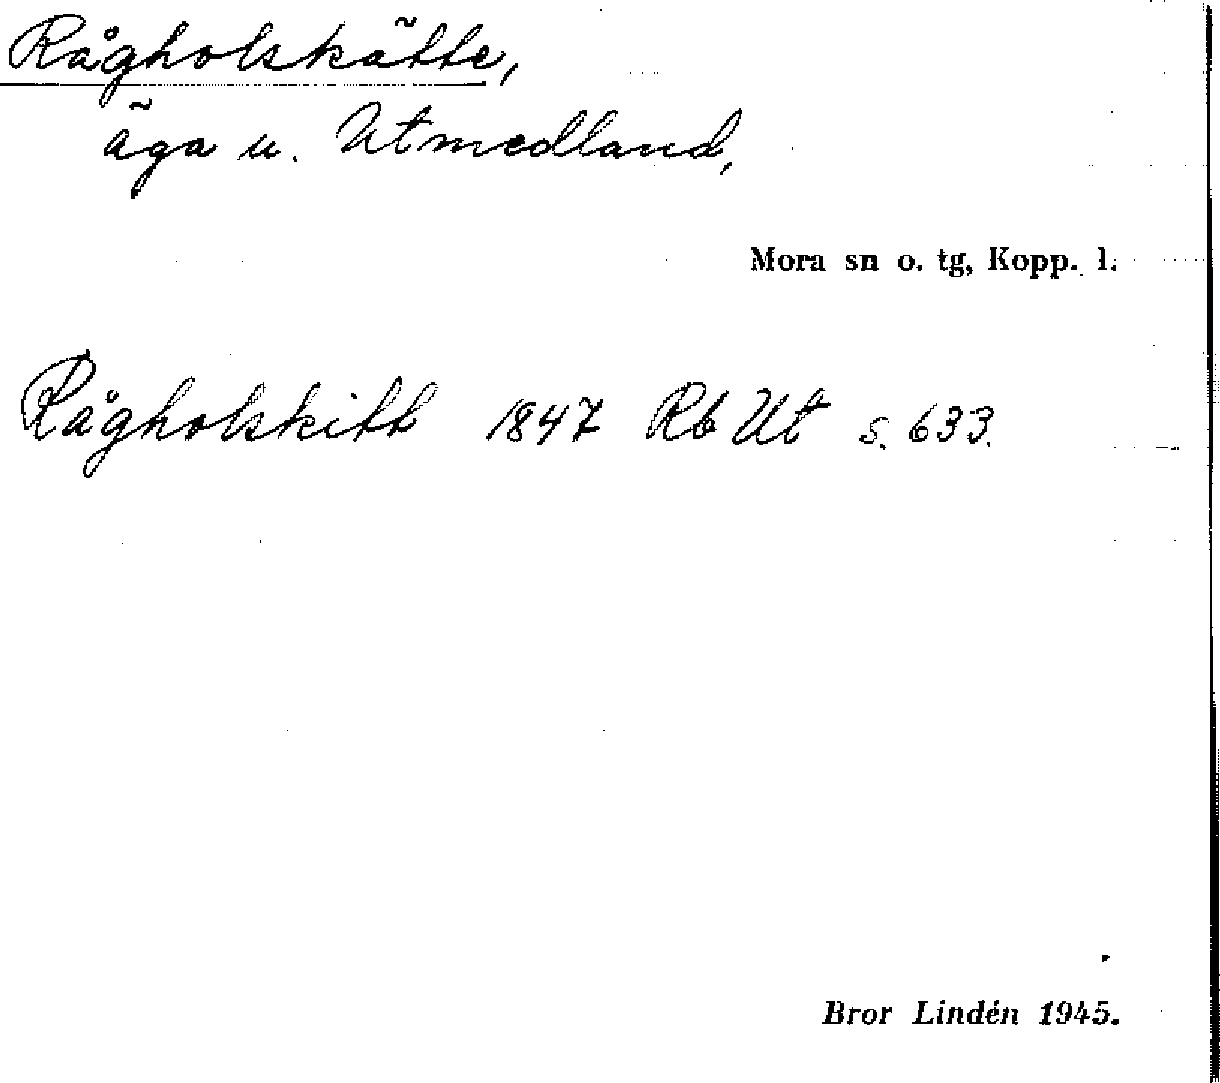 Rågholskätte,
äga u. Utmedland,
Mora sn o. tg, Kopp. l.
Rågholskitt 1847 Rb Ut s. 633.
Bror Lindén 1945.